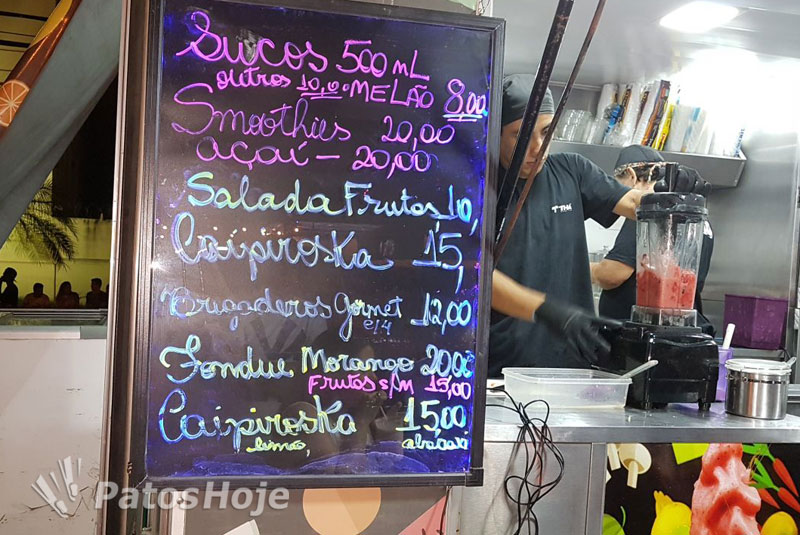 Sucos 500mL
outros 10,00 MELÃO 8,00
Smoothies 20,00
açaí - 20,00
Salada Frutas 10,
Caipiroska 15,
Brigaderos Gornet 12,00
c/4
Fondue Morango 20,00
FRUTOS S/M 15,00
Caipiroska 15,00
limão, abacaxi
PatosHoje